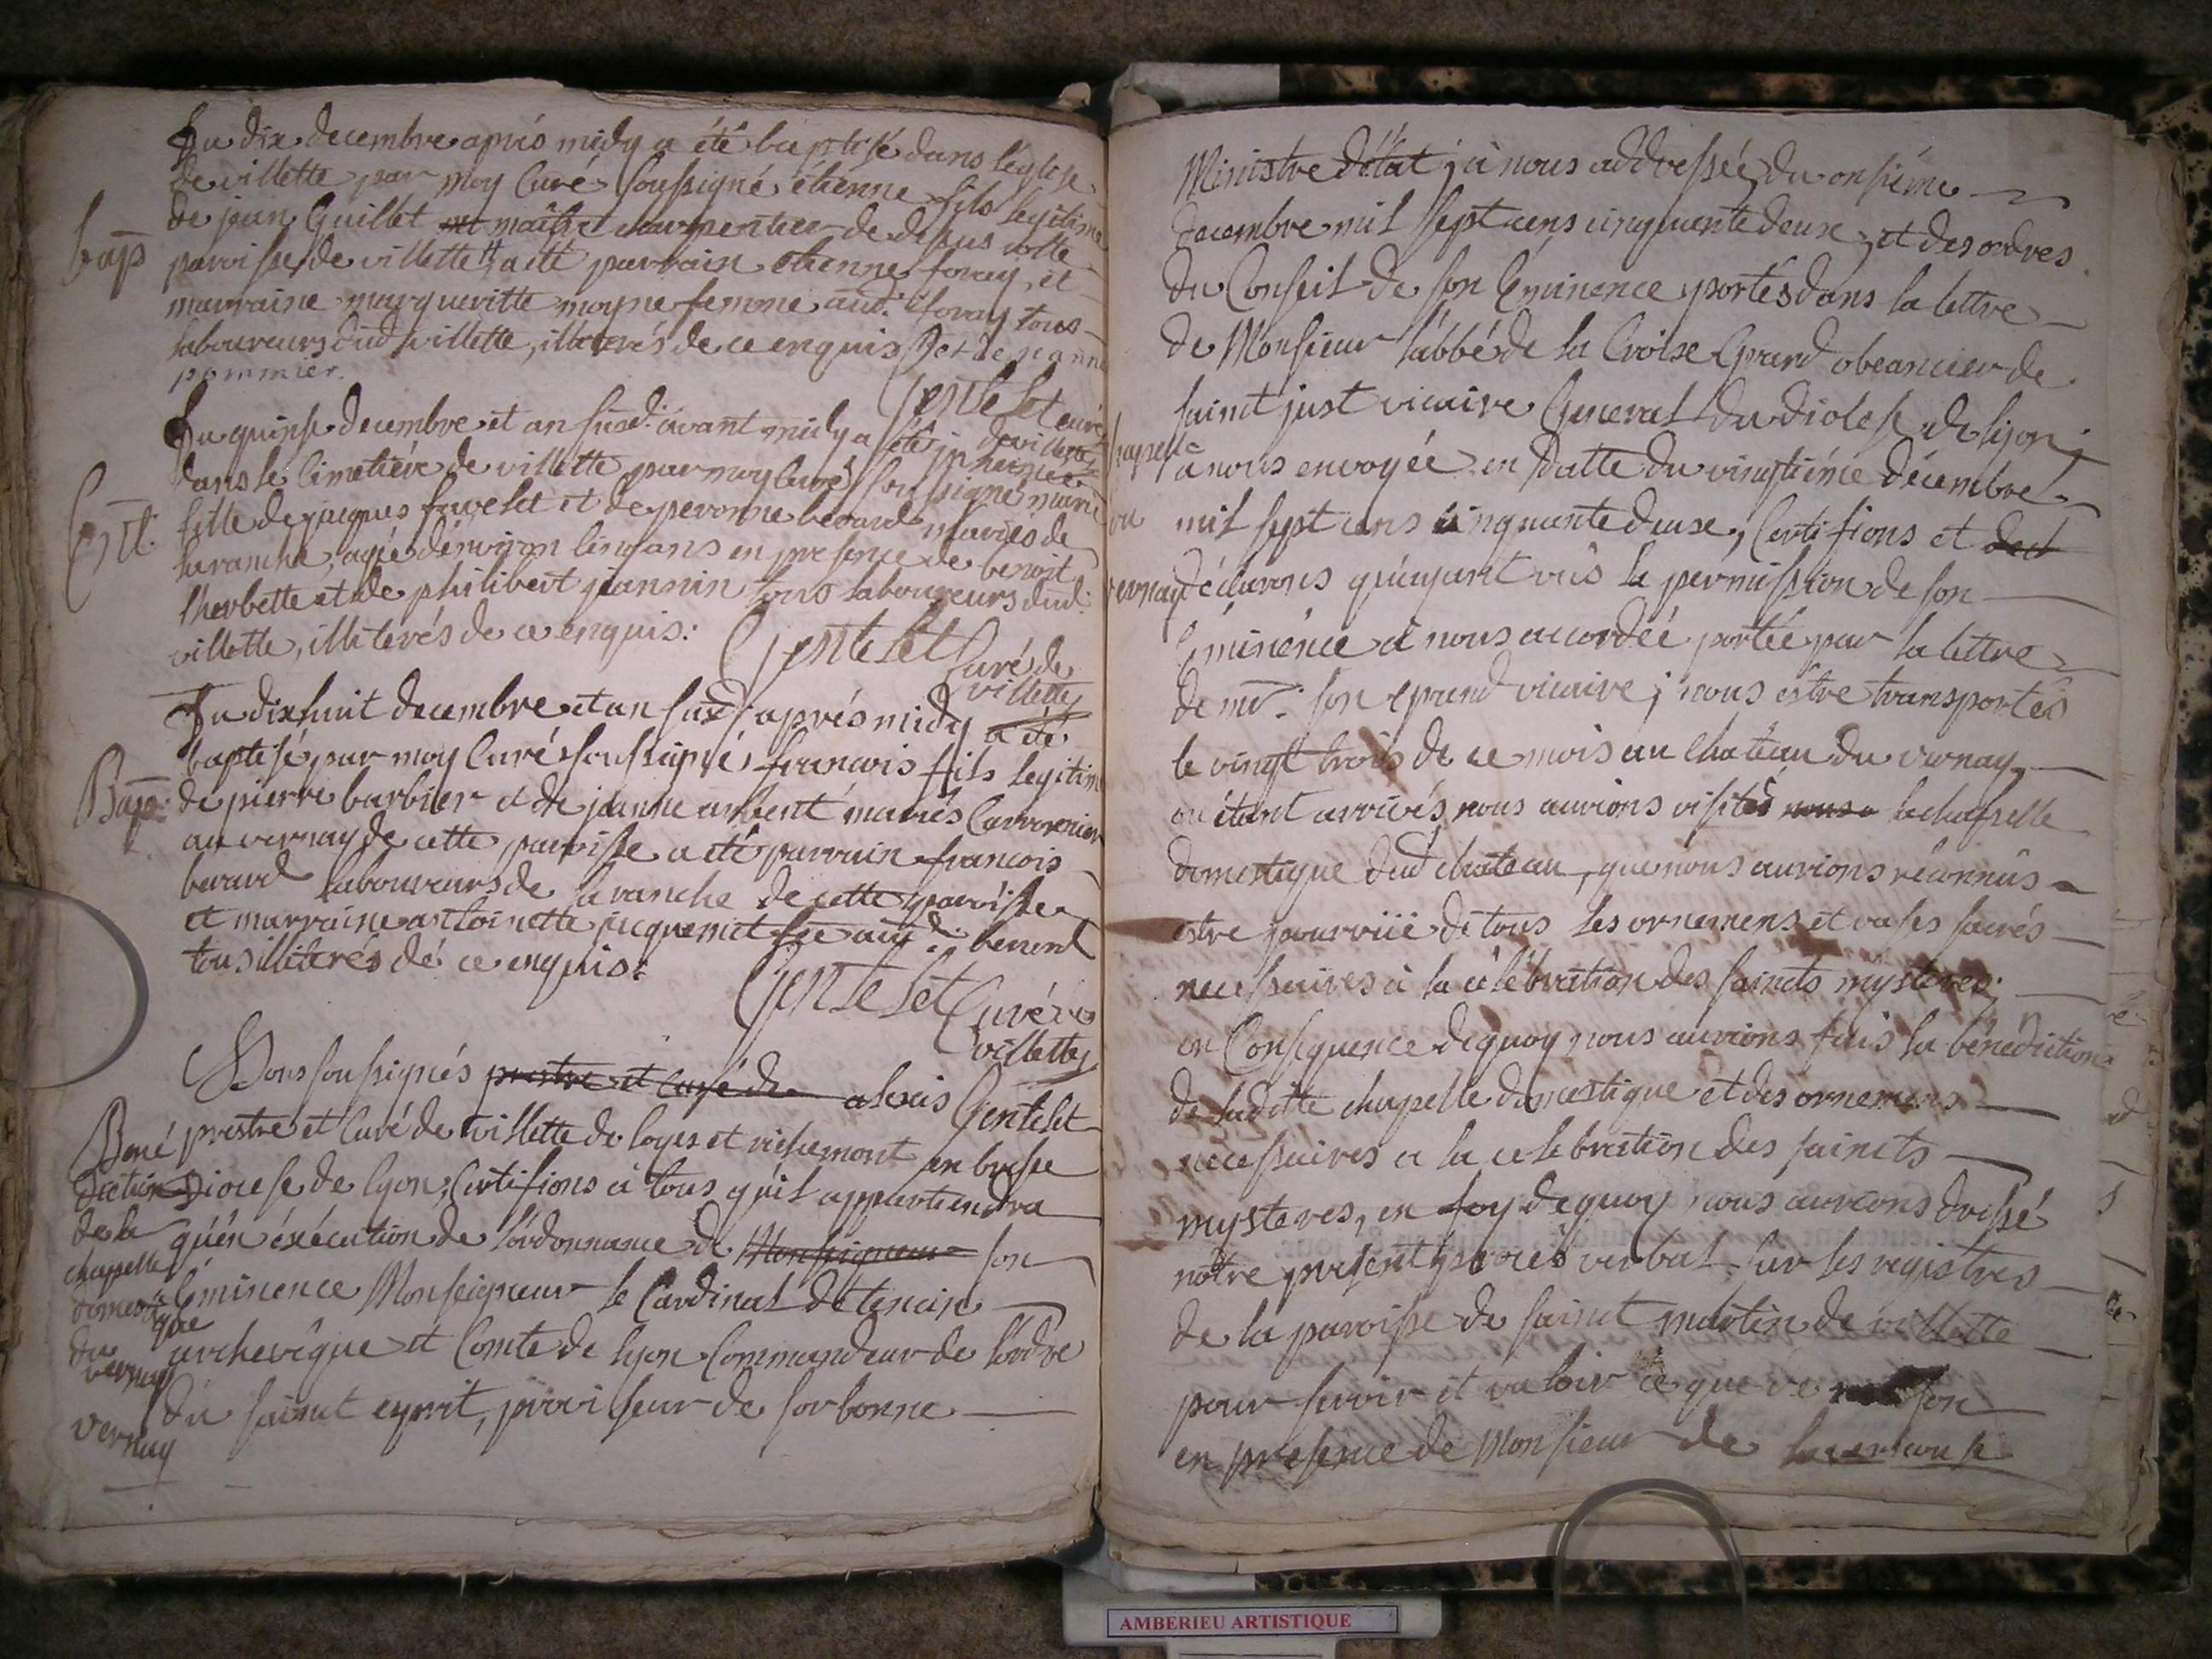 Du dix decembre aprés midy a été baptisé dans léglise
de villette par moy Curé soussigné étienne fils legitime
bap
de jean Guillet maître charpentier de dessus
paroisse de villette, a été parrain étienne foray, et
marraine margueritte moyne femme aud. foray tous
laboureurs dud villette, illiterés de ce enquis et de jeanne
pommier.
Gentelet curé
de villette
Du quinze decembre et an susd. avant midy a été inhumée
dans le Cimetiére de villette par moy Curé soussigné marie
Ent.
fille de jacques favelet et de peronne berard mariés de
la ranche, agée dénviron Cinq ans en presence de benoit
lherbette et de philibert jeannin tous laboureurs dud.
villette, illiterés de ce enquis:
Gentelet Curé de
villette
Du dixhuit decembre et an susd aprés midy a été
baptisé par moy Curé soussigné françois fils legitime
Bap.
de pierre barbier et de jeanne mariés
au vernay de cette paroisse a été parrain francois
berard laboureurs de la ranche de cette paroisse
et marraine antoinette jacquemet aud. berard
tous illiterés dé ce enquis:
Gentelet Curé de
villette
Nous soussignés prestre et curé de alexis Gentelet
Bené
diction
de la
chapelle
domesti
que
du
vernay
vernay
prestre et Curé de villette de loyes et richemont en bresse
Diocese de lyon, Certifions à tous qu'il appartiendra
qu'én éxécution de l'ordonnance de Monseigneur son
Eminence Monseigneur le Cardinal de tencin
archevêque et Comte de lyon Commandeur de l'ordre
du sainct esprit, proviseur de sorbonne
Ministre détat; à nous addressée, du onsiéme
decembre mil sept cens cinquante deux, et des ordres
du Conseil de son Eminence portés dans la lettre
de Monsieur l'abbé de la Croix Grand obeancier de
sainct just vicaire General du diocese de lyon;
chapelle
à nous envoyée en datte du vingtiéme décembre
du
mil sept cens cinquante deux, Certifions et decl
vernay
déclarons qu'ayant vûs la permission de son
Eminénce à nous accordée portée par la lettre
de mr. son grand vicaire; nous estre transportés
le vingt trois de ce mois au chateau du vernay
ou étant arrivés, nous aurions visités nous la chapelle
domestique dud chateau, que nous aurions réconnûs
estre pourvüe de tous les ornemens et vases sacrés
necessaires à la célébration des saincts mysteres;
en Consequence dequoy nous aurions fais la bénédiction
de ladite chapelle domestique et des ornemens
necessaires a la celebration des saincts
mysteres, en foy dequoy nous aurions dressé
nôtre present procés verbal sur les registres
de la paroisse de sainct martin de villette
pour servir et valoir ce que de son
en presence de Monsieur de
AMBERIEU ARTISTIQUE